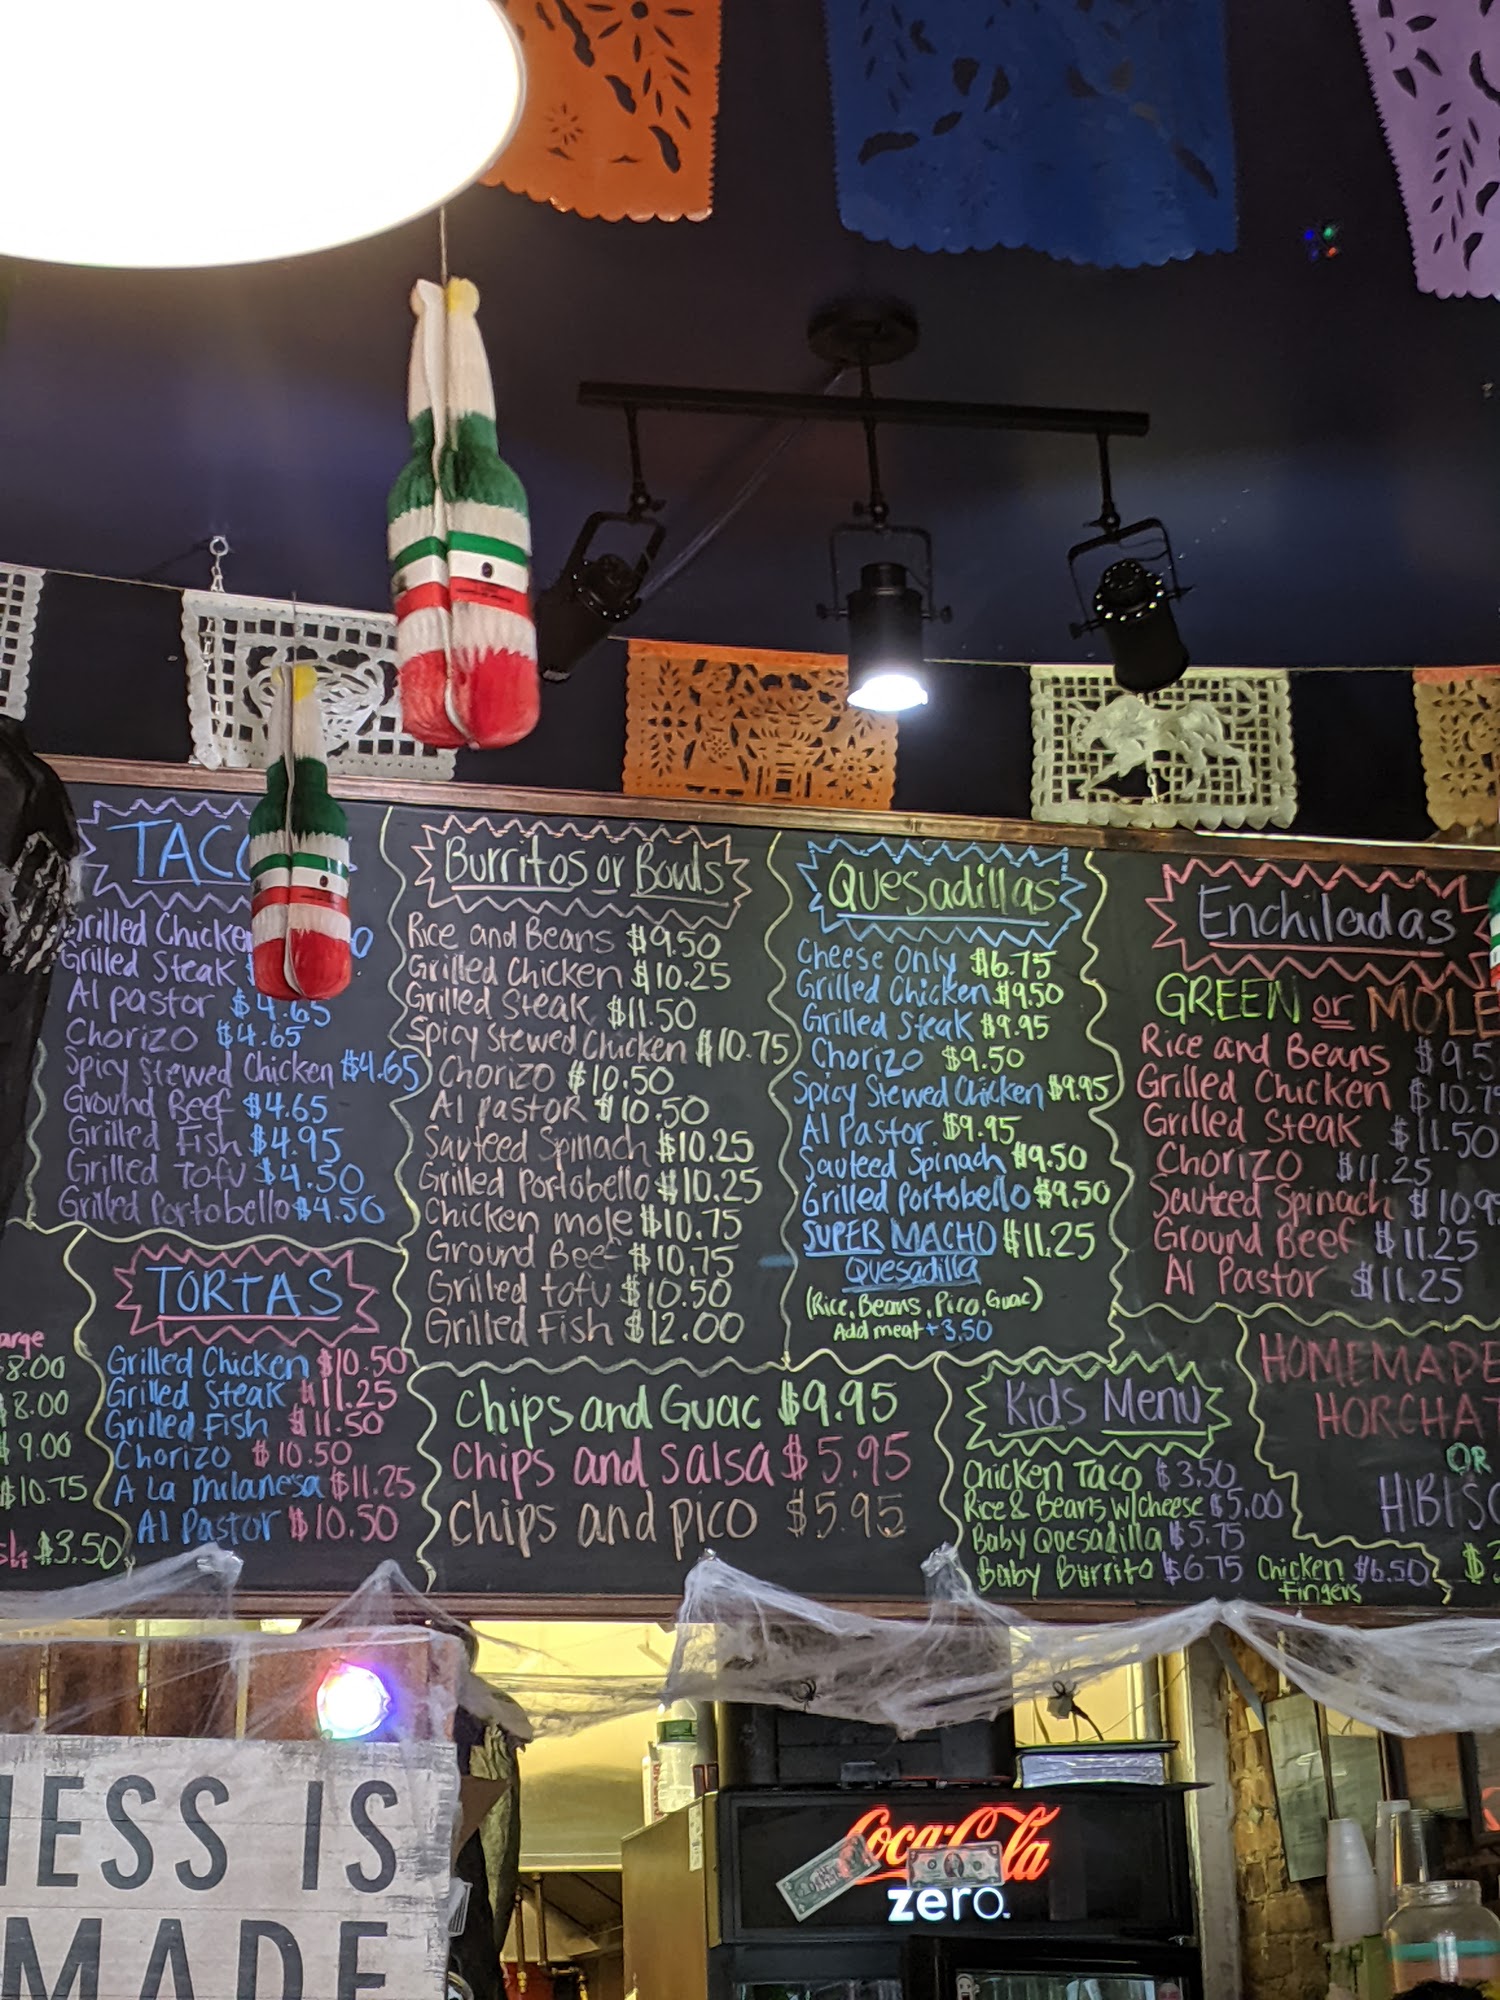 TACO
Grilled Chicken
Grilled Steak $
Al pastor $4.65
Chorizo $4.65
Spicy Stewed Chicken $4.65
Ground Beef $4.65
Grilled Fish $4.95
Grilled Tofu $4.50
Grilled Portobello $4.50
Burritos or Bowls
Rice and Beans $9.50
Grilled Chicken $10.25
Grilled Steak $11.50
Spicy Stewed Chicken $10.75
Chorizo $10.50
Al pastor $10.50
Sauteed Spinach $10.25
Grilled Portobello $10.25
Chicken mole $10.75
Ground Beef $10.75
Grilled tofu $10.50
Grilled Fish $12.00
Quesadillas
Cheese Only $6.75
Grilled Chicken $9.50
Grilled Steak $9.95
Chorizo $9.50
Spicy Stewed Chicken $9.95
Al Pastor $9.95
Sauteed Spinach $9.50
Grilled Portobello $9.50
SUPER MACHO $11.25
Quesadilla
(Rice, Beans, Pico, Guac)
Add meat + 3.50
Enchiladas
GREEN or MOLE
Rice and Beans $9.5
Grilled Chicken $10.7
Grilled Steak $11.50
Chorizo $11.25
Sauteed Spinach $10.9
Ground Beef $11.25
Al Pastor $11.25
arge
$8.00
$8.00
$9.00
$10.75
$3.50
TORTAS
Grilled Chicken $10.50
Grilled Steak $11.25
Grilled Fish $11.50
Chorizo $10.50
A La Milanesa $11.25
Al Pastor $10.50
Chips and Guac $9.95
Chips and Salsa $5.95
Chips and pico $5.95
Kids Menu
Chicken Taco $3.50
Rice & Beans w/cheese $5.00
Baby Quesadilla $5.75
Baby Burrito $6.75
Chicken $6.50
Fingers
HOMEMADE
HORCHAT
OR
HIBISC
$3
NESS IS
MADE
Coca-Cola
zero